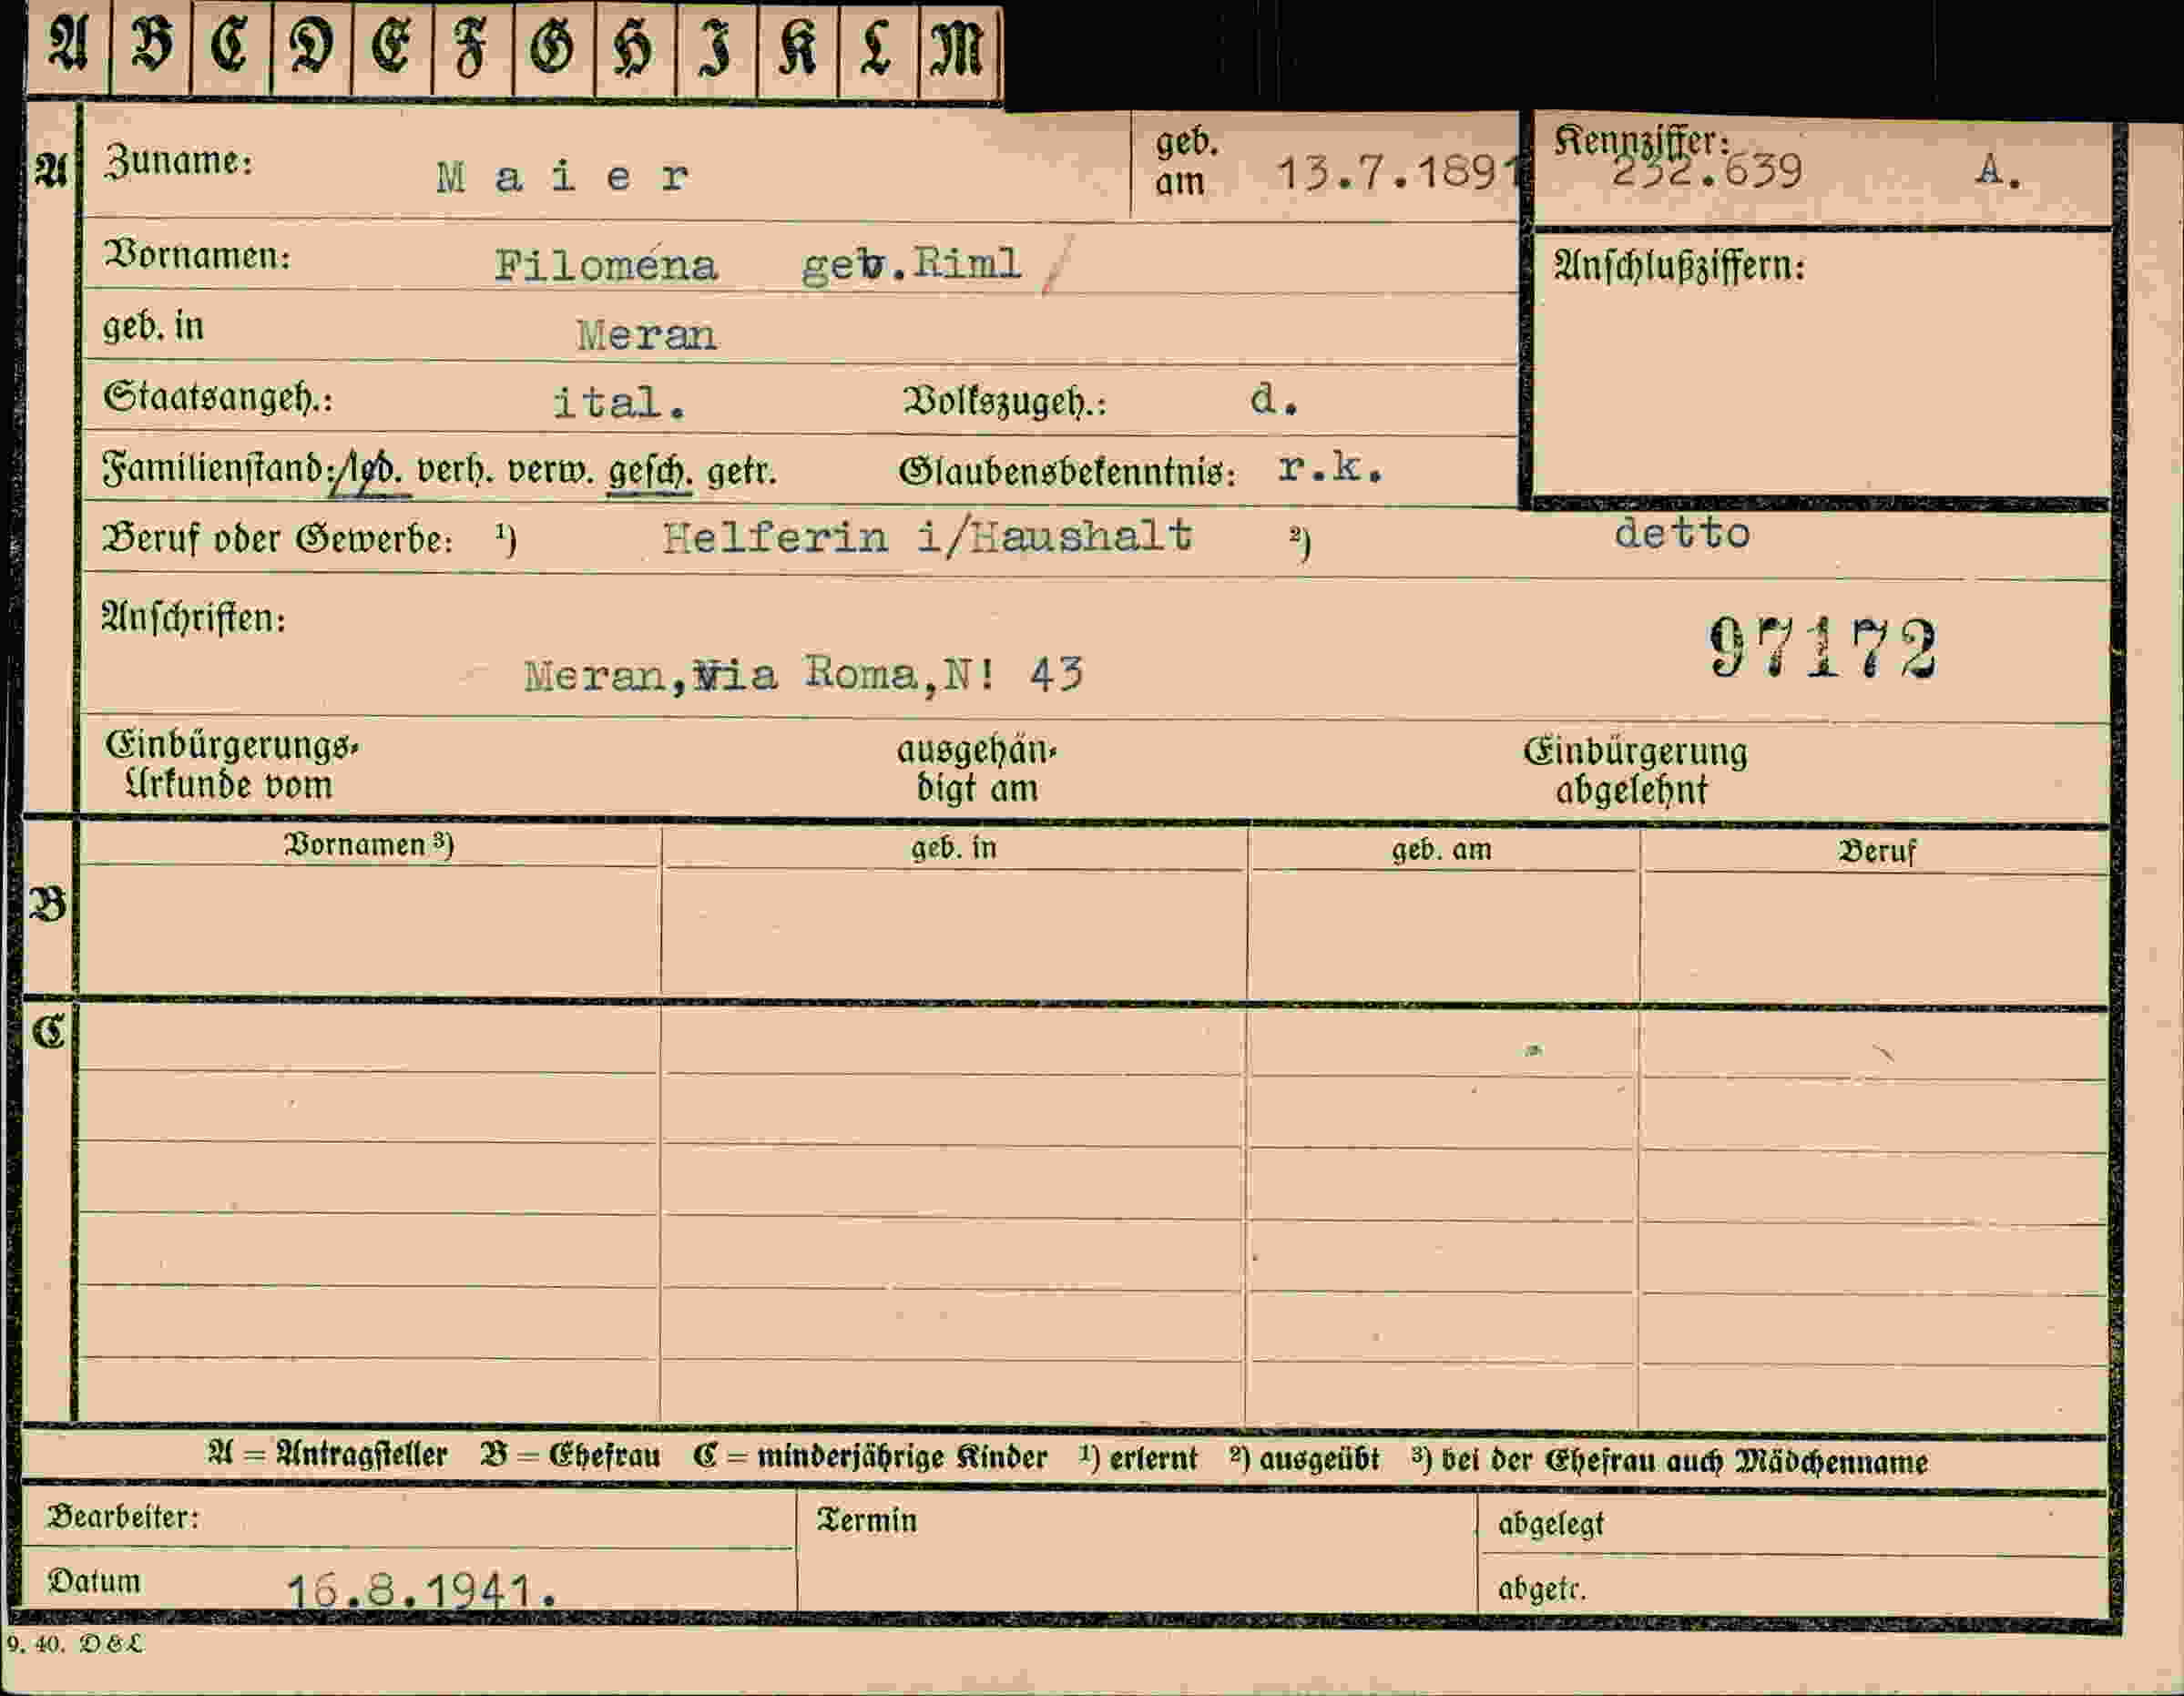 A B C D E F G H I K L M
A Zuname: Maier geb. am 13.7.1891 Kennziffer: 232.639 A.
Vornamen: Filoména geb.Riml /
Anschlußziffern:
geb. in Meran
Staatsangeh.: ital. Volkszugeh.: d.
Familienstand: / led. verh. verw. gesch. getr. Glaubensbekenntnis: r.k.
Beruf oder Gewerbe: ¹) Helferin i/Haushalt ²) detto
Anschriften:
97172
Meran,Via Roma,N! 43
Einbürgerungs- ausgehän- Einbürgerung
Urkunde vom digt am abgelehnt
Vornamen ³) geb. in geb. am Beruf
B
C
A = Antragsteller B = Ehefrau C = minderjährige Kinder ¹) erlernt ²) ausgeübt ³) bei der Ehefrau auch Mädchenname
Bearbeiter: Termin abgelegt
Datum 16.8.1941. abgetr.
9. 40. D & L